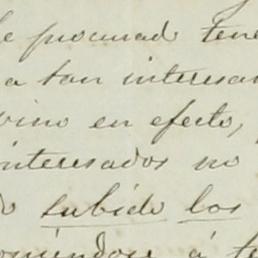 procurado tene
a tan interesan
vino en efecto,
interesados no
subido los
á